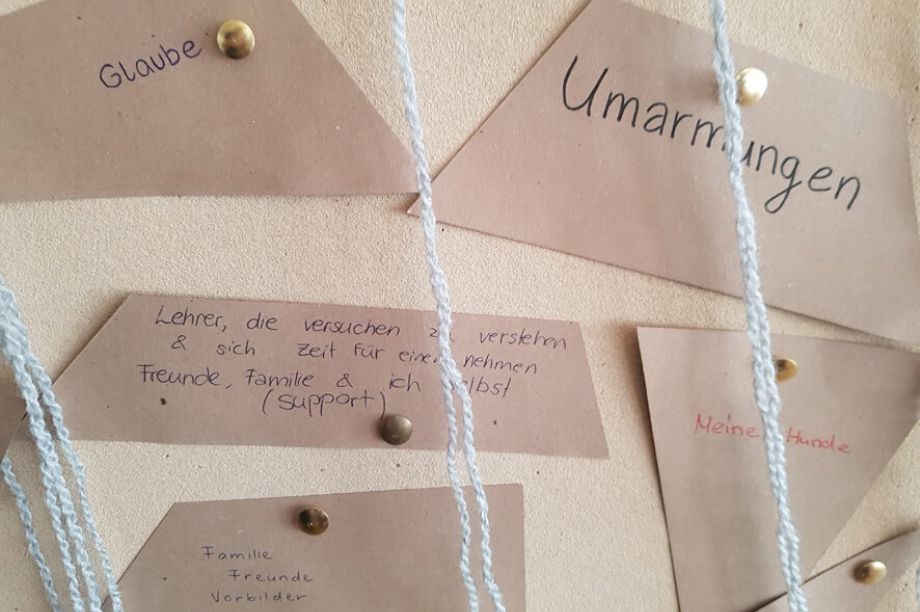 Glaube
Umarmungen
Lehrer, die versuchen zu verstehen
& sich Zeit für einen nehmen
Freunde, Familie & ich selbst
(support)
Meine Hunde
Familie
Freunde
Vorbilder